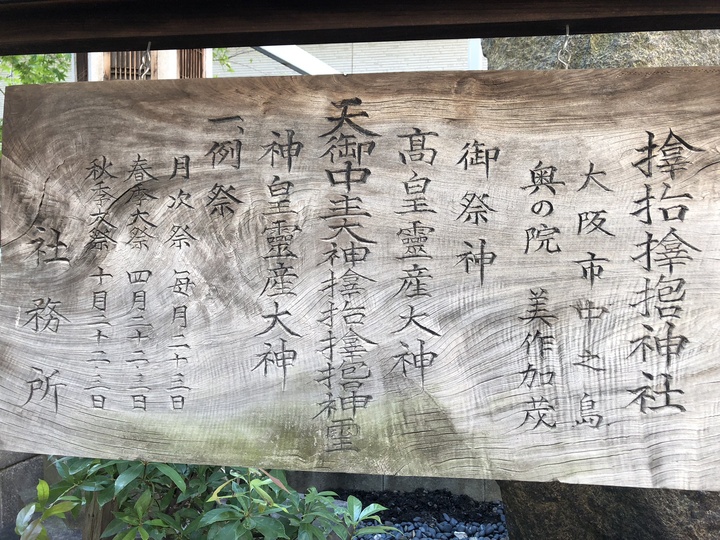 神社
大阪市中之島
奥の院 美作加茂
御祭神
髙皇靈産大神
天御中主大神 神霊
神皇靈産大神
一、例祭
月次祭 毎月二十三日
春季大祭 四月二十二、三日
秋季大祭 十月二十二、三日
社務所